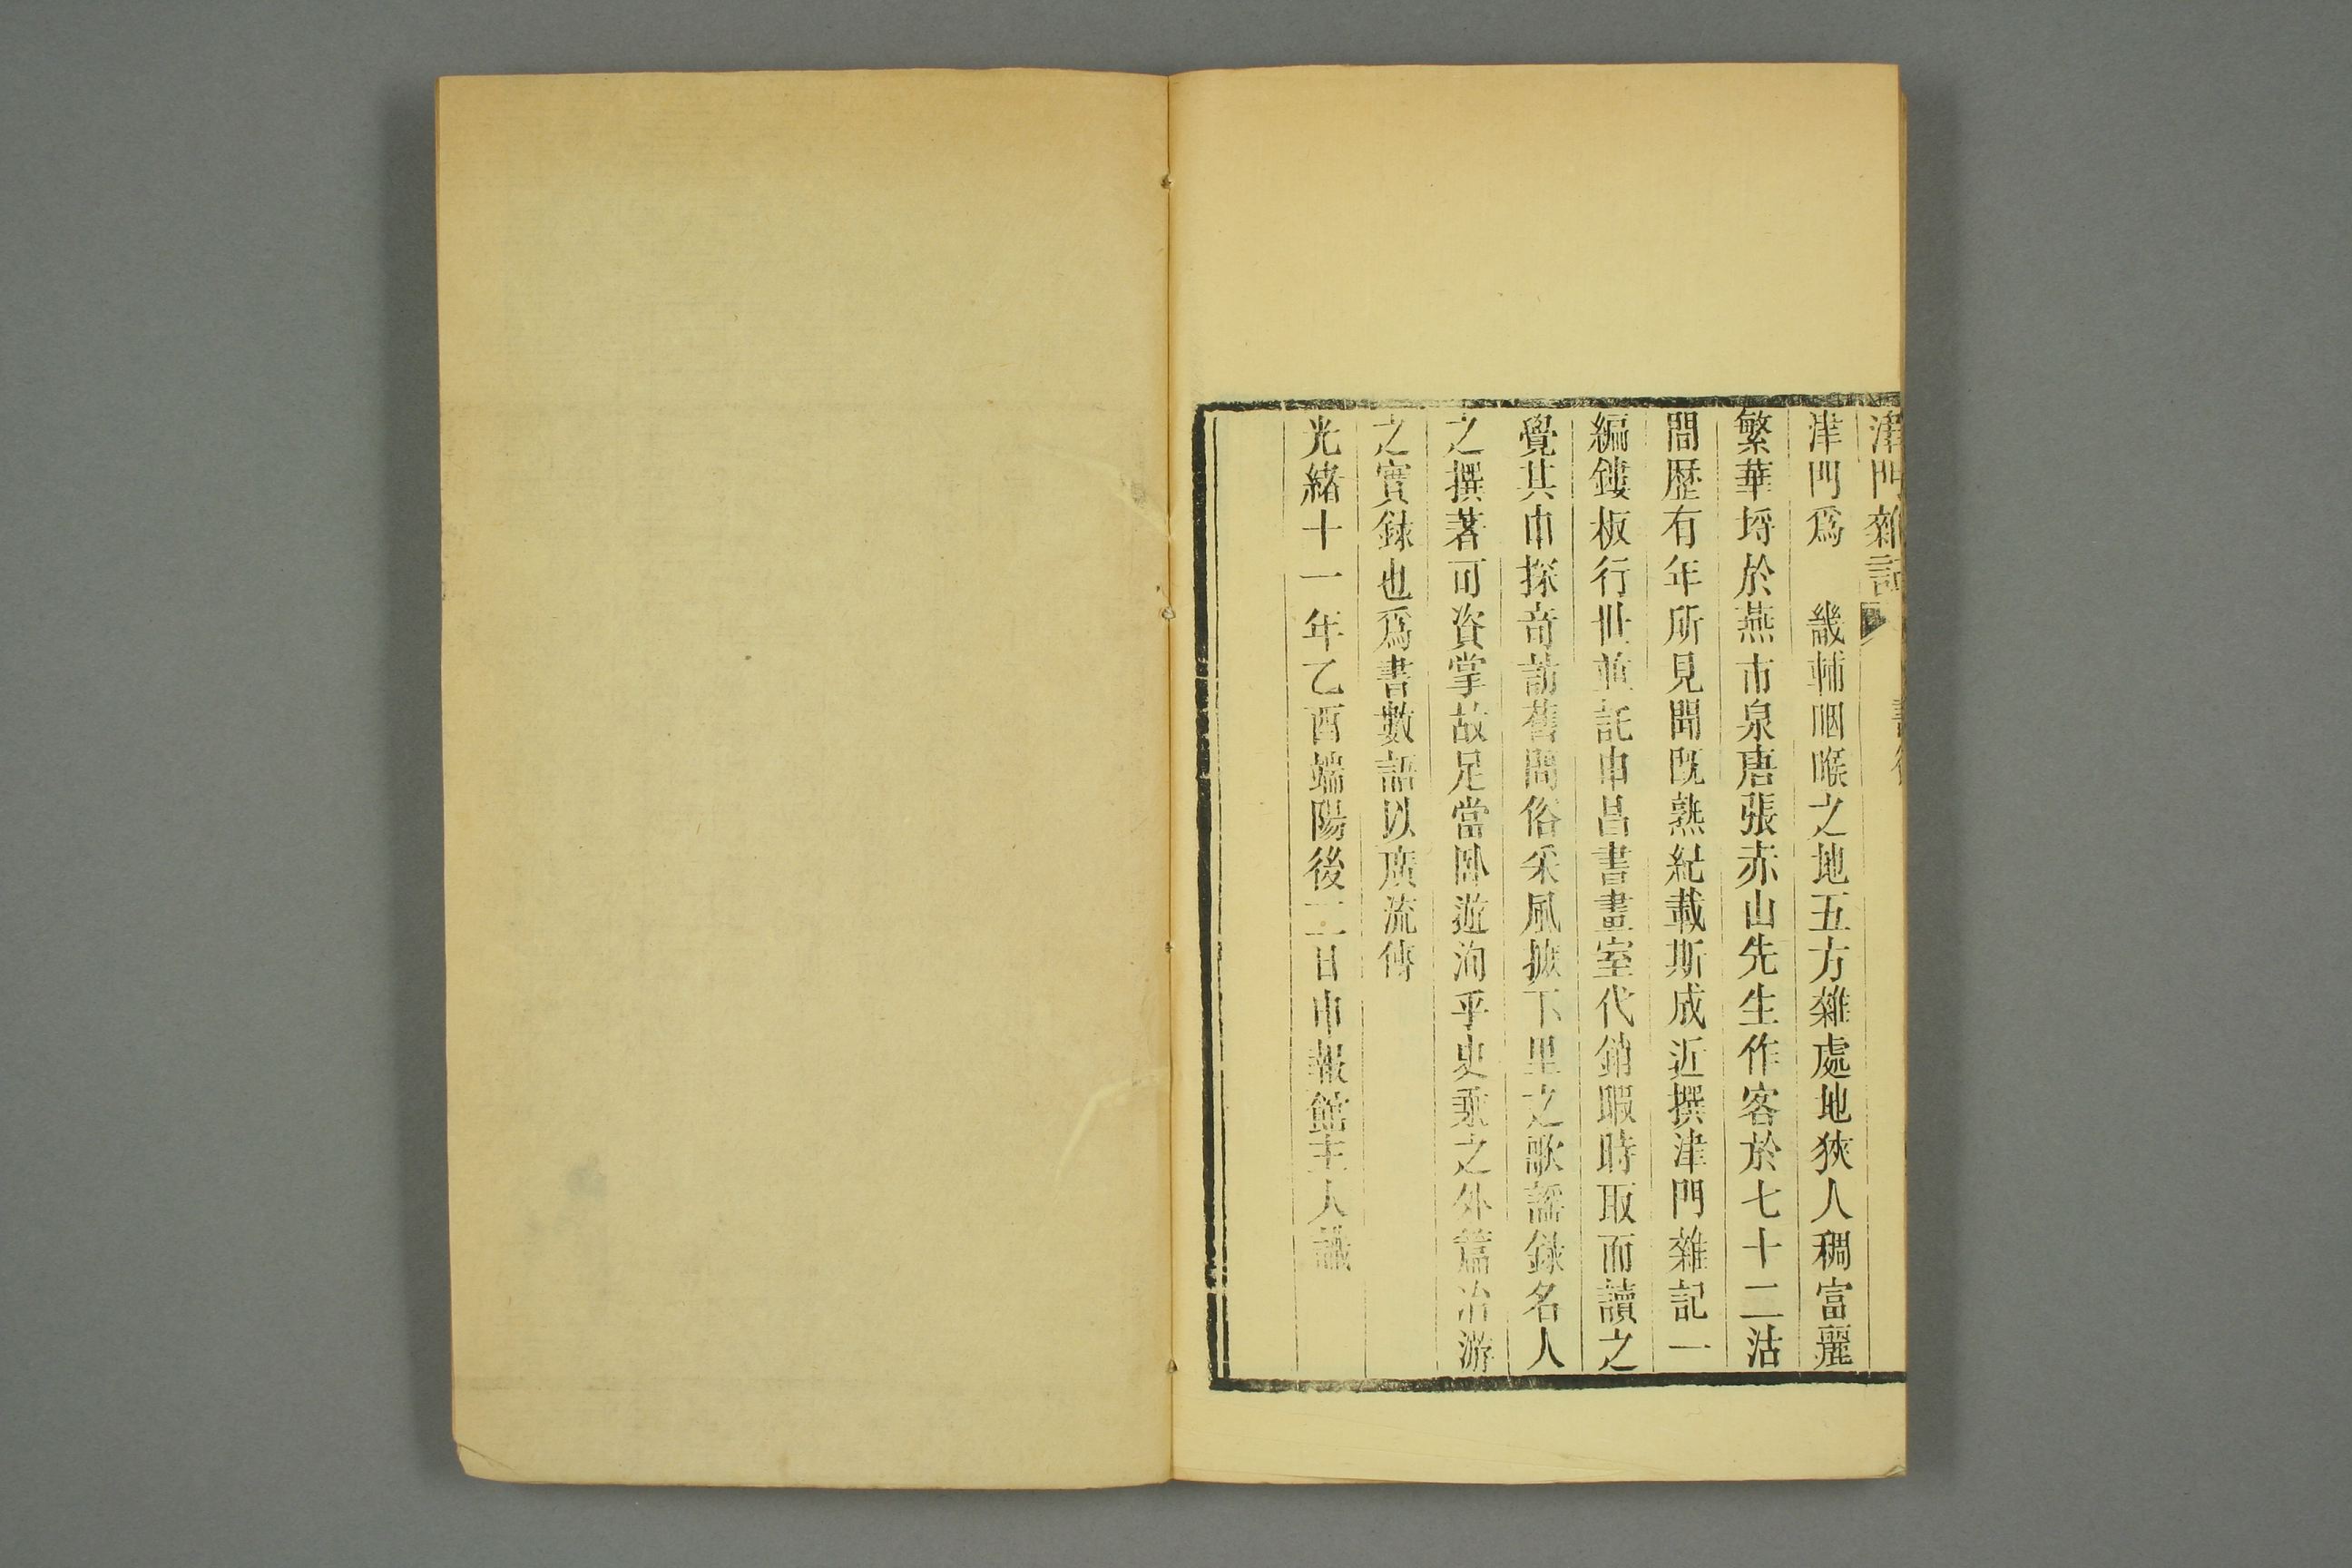 津門雜記
津門爲　畿輔咽喉之地五方雜處地狹人稠富麗
繁華埒於燕市泉唐張赤山先生作客於七十二沽
間歷有年所見聞既熟紀載斯成近撰津門雜記一
編鏤板行世並託申昌書畫室代銷暇時取而讀之
覺其中探奇訪舊問俗采風摭下里之歌謠錄名人
之撰著可資掌故足當臥遊洵乎史乘之外篇冶游
之實錄也爲書數語以廣流傳
光緒十一年乙酉端陽後二日申報館主人識